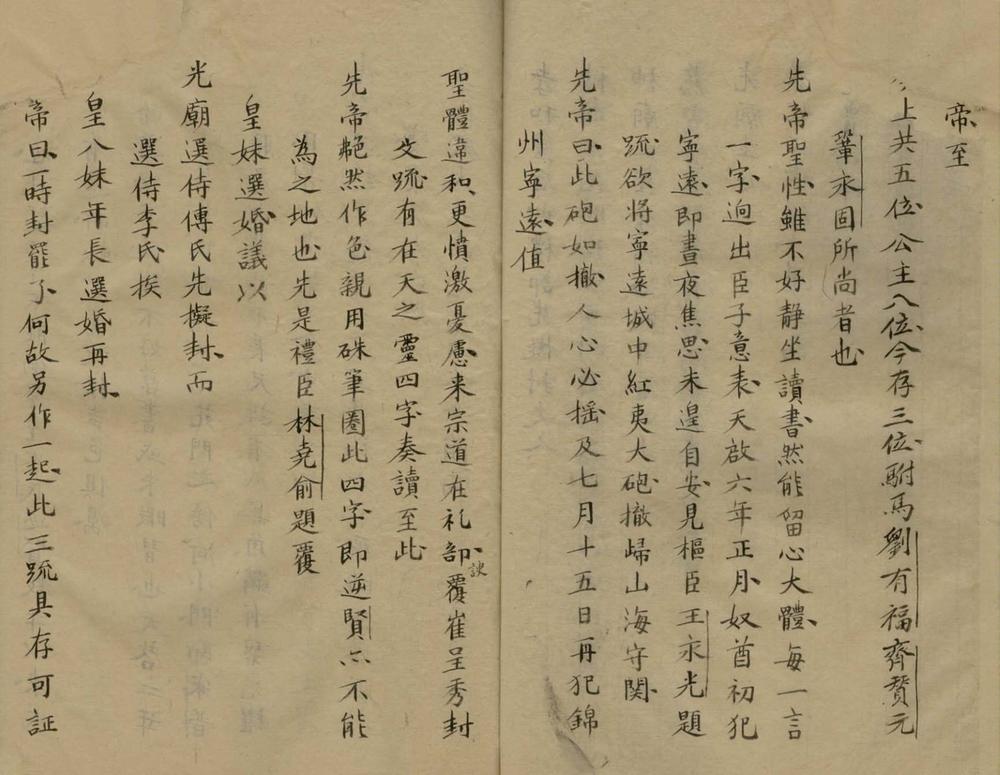 帝至
上共五位公主八位今存三位駙馬劉有福齊贊元
鞏永固所尚者也
先帝聖性雖不好静坐讀書然能留心大體每一言
一字迥出臣子意表天啟六年正月奴酋初犯
寧遠即晝夜焦思未遑自安見樞臣王永光題
疏欲將寧遠城中紅夷大砲撤歸山海守関
先帝曰此砲如撤人心必揺及七月十五日再犯錦
州寧遠值
聖體違和更憤激憂慮来宗道在礼部覆崔呈秀封
諛
文疏有在天之靈四字奏讀至此
先帝艴然作色親用硃筆圈此四字即逆賢亦不能
為之地也先是禮臣林堯俞題覆
皇妹選婚議以
光廟選侍傅氏先擬封而
選侍李氏挨
皇八妹年長選婚再封
帝曰一時封罷了何故另作一起此三疏具存可証